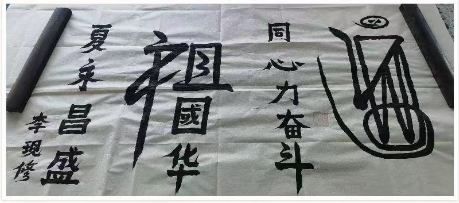 同心力奋斗
祖國华
夏永昌盛
李現修